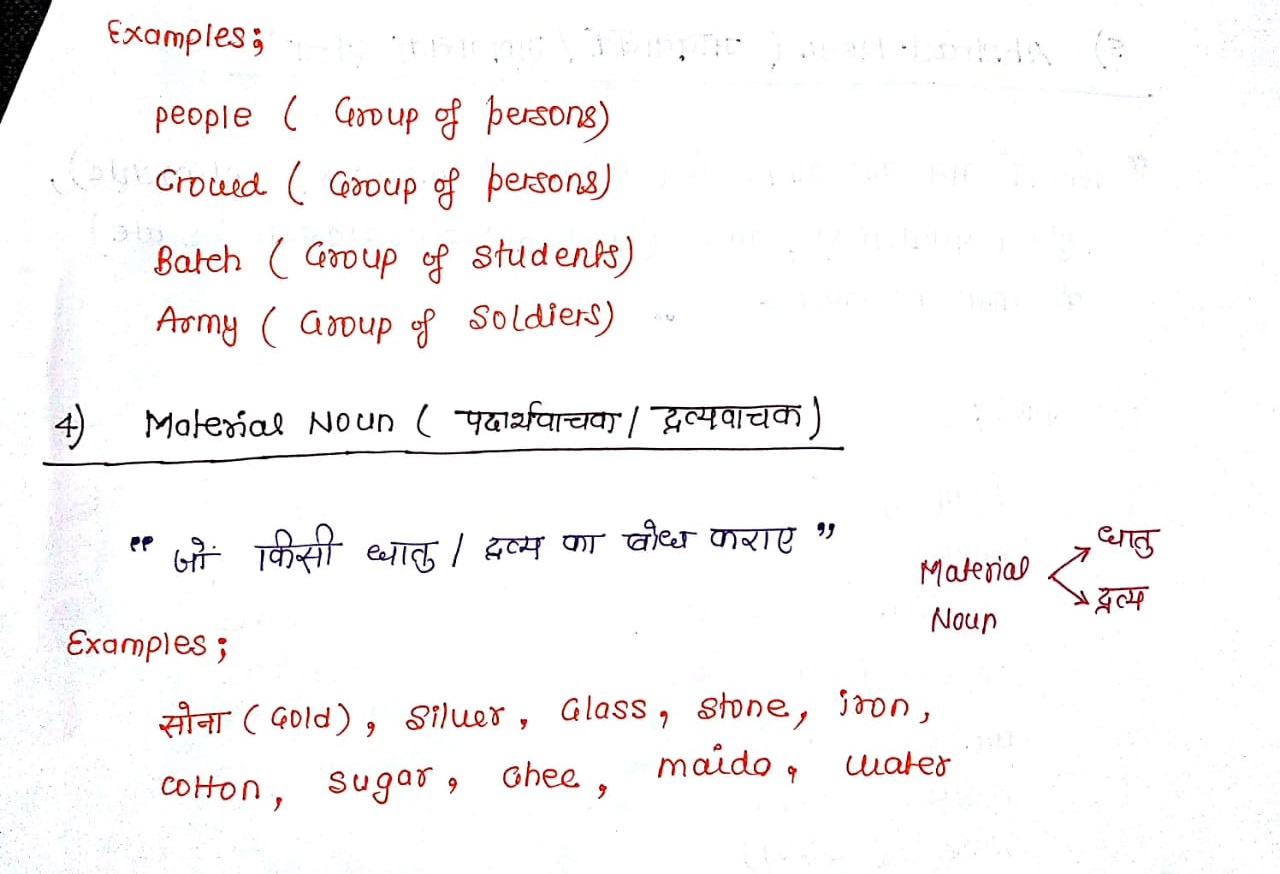 Examples;
people ( Group of persons)
Crowd ( Group of persons)
Batch ( Group of students)
Army ( Group of Soldiers)
4) Material Noun ( पदार्थवाचक / द्रव्यवाचक )
" जो किसी धातु / द्रव्य का बोध कराए "
Material Noun
धातु
द्रव्य
Examples;
सोना ( Gold ), Silver, Glass, stone, iron,
cotton, sugar, Ghee, maida, water